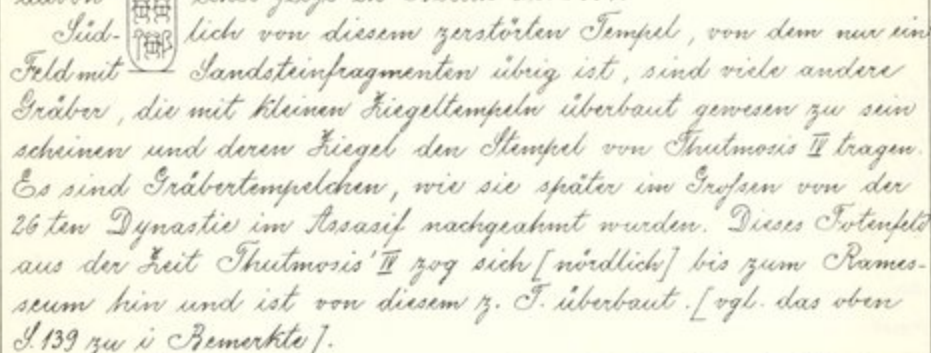 Süd- lich von diesem zerstörten Tempel, von dem nur ein
Feld mit Sandsteinfragmenten übrig ist, sind viele andere
Gräber, die mit kleinen Ziegeltempeln überbaut gewesen zu sein
scheinen und deren Ziegel den Stempel von Thutmosis IV tragen.
Es sind Gräbertempelchen, wie sie später im Grossen von der
26 ten Dynastie im Assasif nachgeahmt wurden. Dieses Totenfeld
aus der Zeit Thutmosis' IV zog sich [nördlich] bis zum Rames-
seum hin und ist von diesem z. T. überbaut. [vgl. das oben
S. 139 zu i Bemerkte].